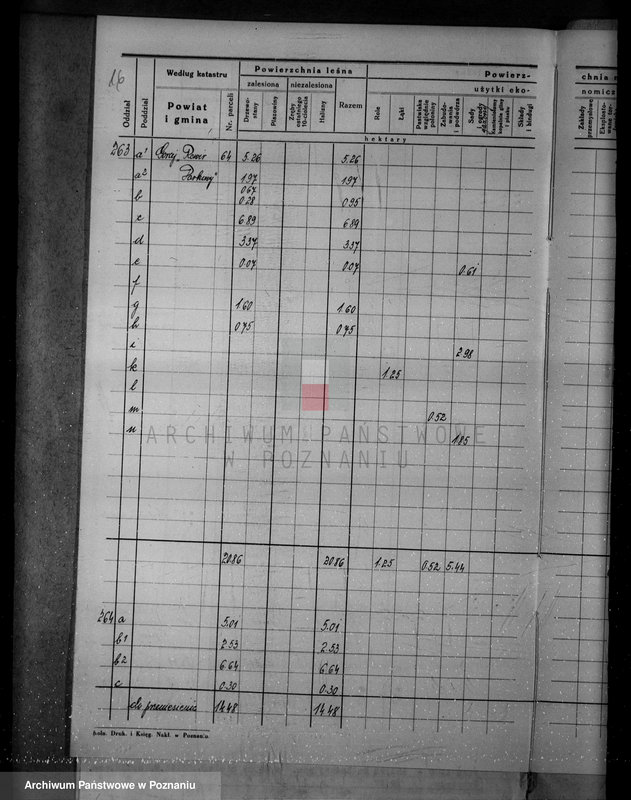 16
Według katastru
Powierzchnia leśna
Powierz-
chnia n
zalesiona
niezalesiona
użytki eko-
nomicz
Oddział
Pododdział
Powiat
i gmina
Nr. parceli
Drzewo-
stany
Płazowiny
Zręby
ostatniego
10-ciolecia
Halizny
Razem
Role
Łąki
Pastwiska
względnie
połoniny
Zabudo-
wania
i podwórza
Sady
i ogrody
Składy
i bindugi
Zakłady
przemysłowe
hektary
263 a¹ 64 5.26 5.26
a² 1.97 1.97
0.67
b 0.28 0.95
c 6.89 6.89
d 3.37 3.37
e 0.07 0.07 0.61
f
g 1.60 1.60
h 0.75 0.75
i 2.98
k 1.25
l
m 0.52
n 1.85
ARCHIWUM PAŃSTWOWE
W POZNANIU
20.86 20.86 1.25 0.52 5.44
264 a 5.01 5.01
b1 2.53 2.53
b2 6.64 6.64
c 0.30 0.30
do przeniesienia 14.48 14.48
Druk. i Księg. Nakł. w Poznaniu
Archiwum Państwowe w Poznaniu